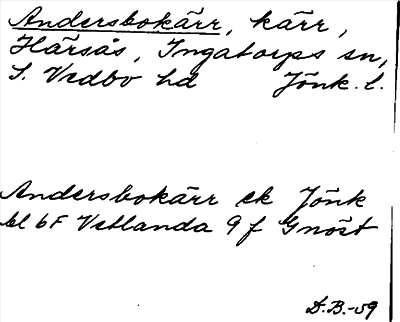 Andersbokärr, kärr,
Härsås, Ingatorps sn,
S. Vedbo hd Jönk. l.
Andersbokärr ek Jönk
bl 6F Vetlanda 9f Gnöst
D.B.-59